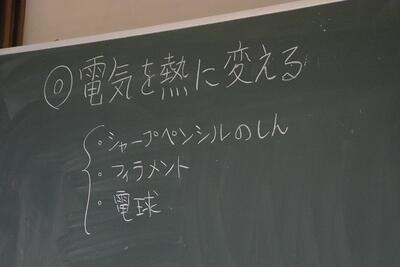 ◎電気を熱に変える
・シャープペンシルのしん
・フィラメント
・電球